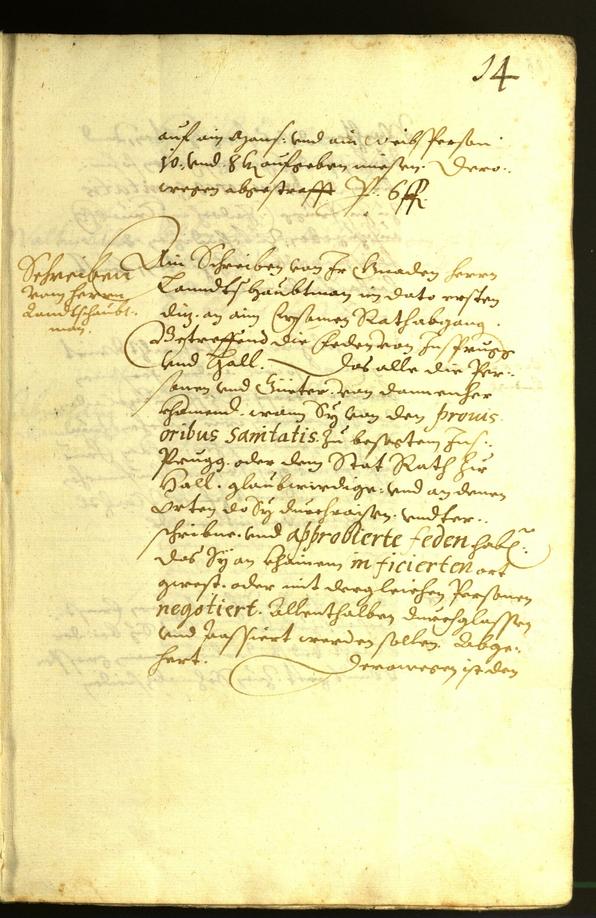 14
auf ain Manß: vnd ain weibs Person
10. vnd 8 kr aufgeben miesen. Dero..
wegen abgestrafft P: 6 fl.
Schreiben
vom herrn
Landtshaubt.
man.
Ain Schreiben von Ir Gnaden herrn
Landtshaubtman im dato ersten
diz. an ain Ersamen Rath abgang.
Betreffend die Feden von Insprugg
vnd Hall. Das alle die Per:.
sonen vnd Güeter. von dannen her
khomend. wann Sy von den provis
oribus sanitatis. zu besagtem Ins:.
Prugg. oder dem Stat Rath zu
Hall. glaubwirdige: vnd an denen
Orten do Sy durchraisen. vndter..
schribne. vnd approbierte feden haben:
das Sy an khainem inficierten ort
gwest. oder mit dergleichen Personen
negotiert. Allenthalben durchglassen
vnd Passiert werden sollen. Abge:
hert. Derowegen ist den